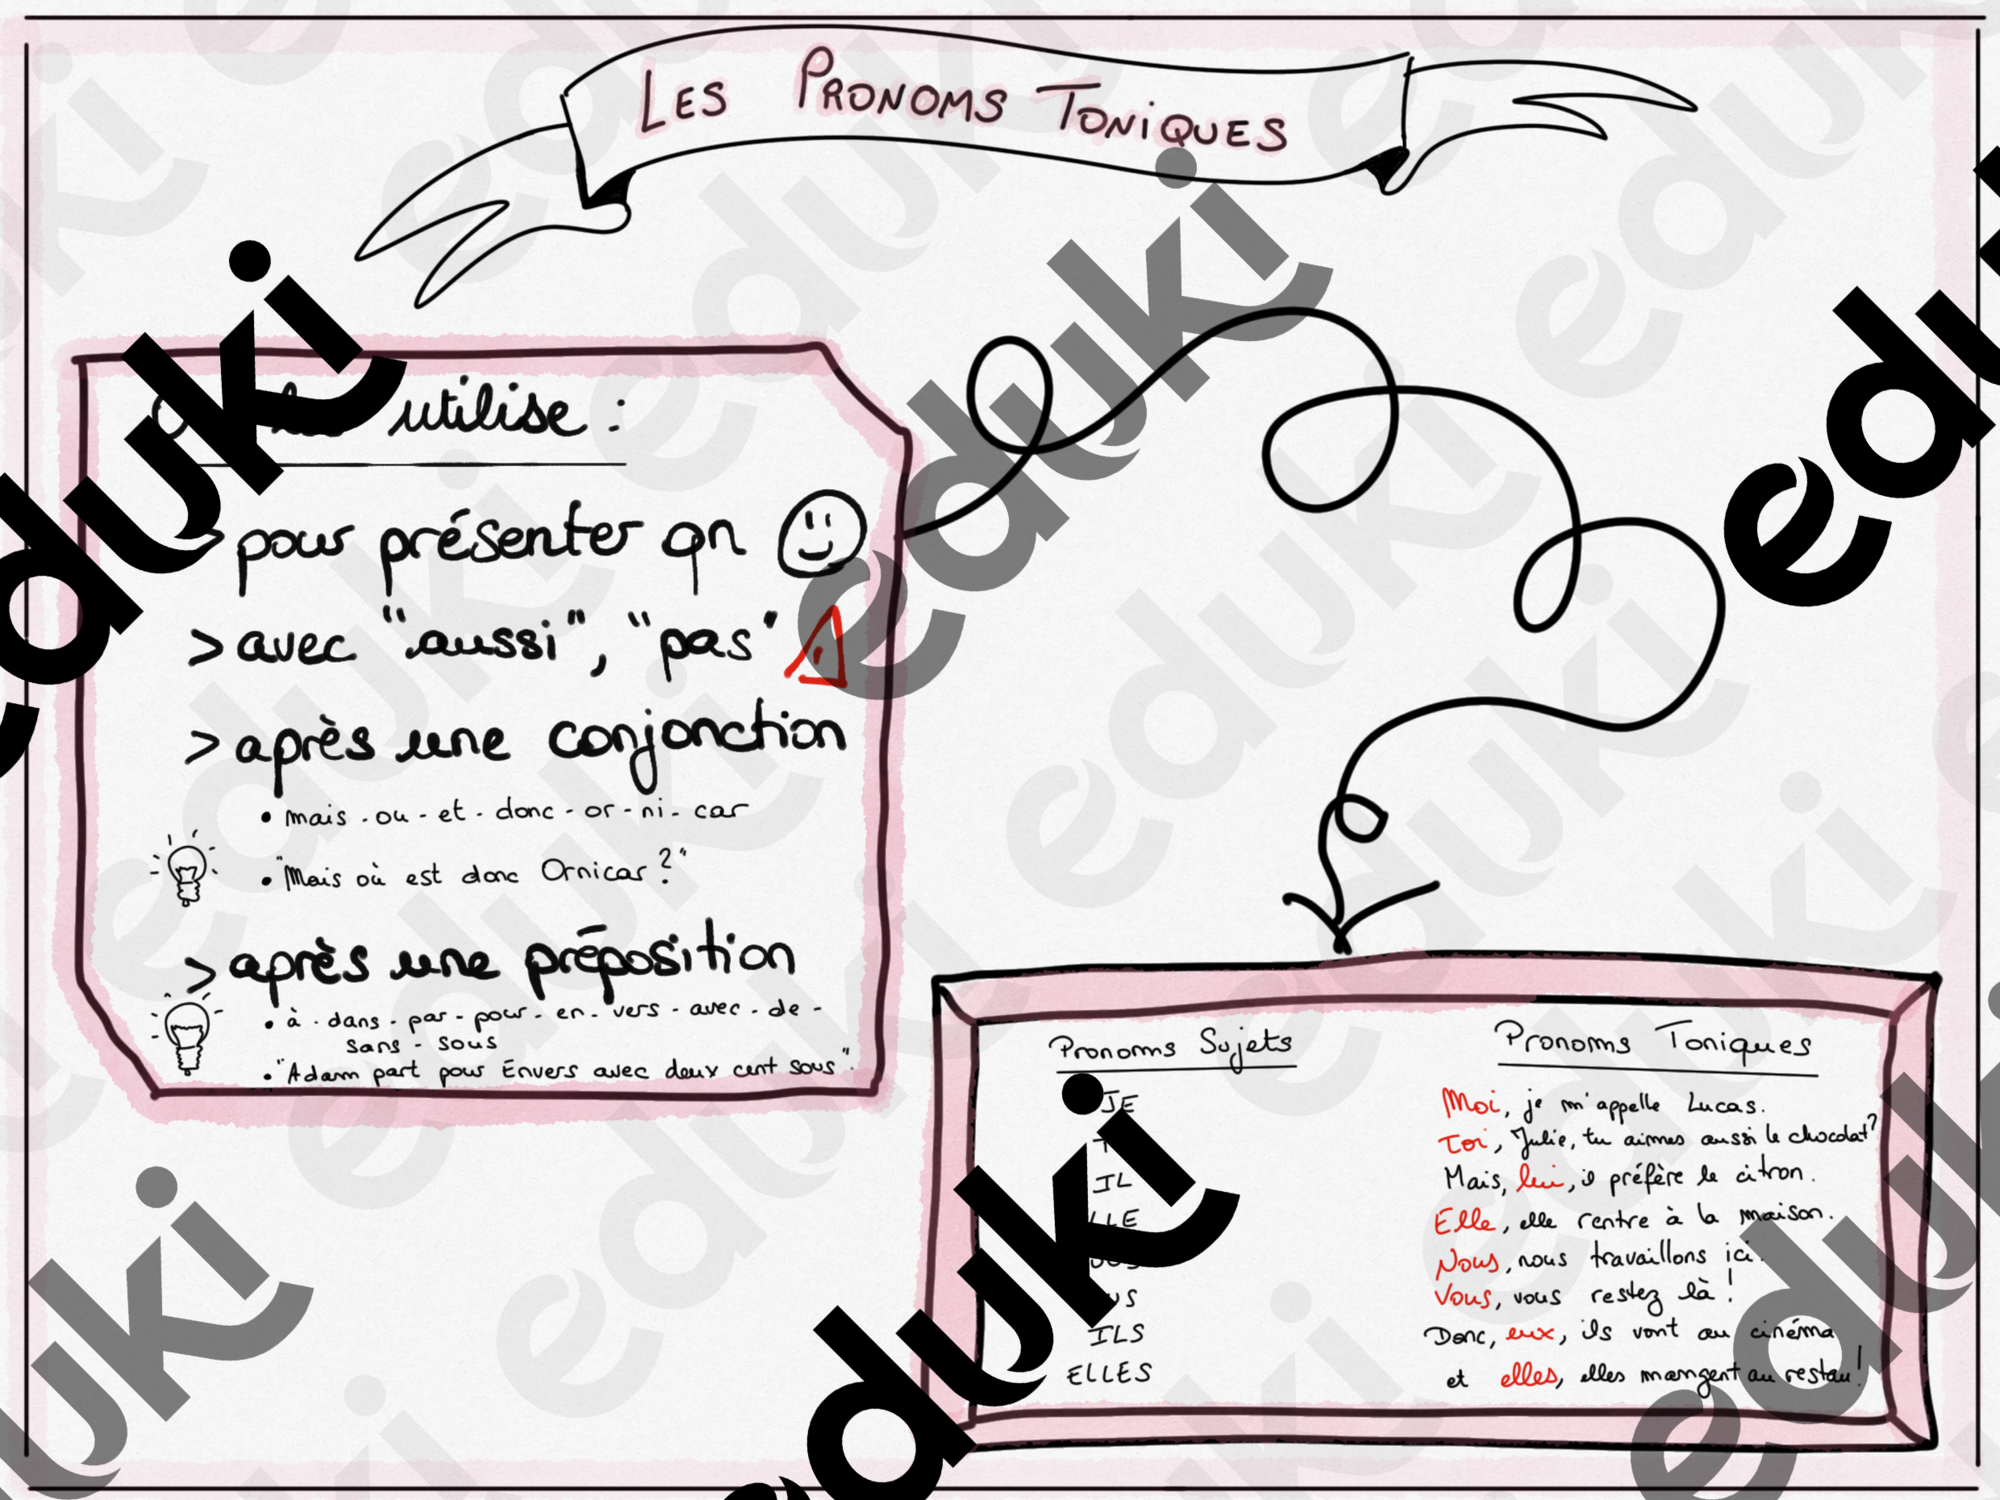 LES PRONOMS TONIQUES
utilise :
> pour présenter qn
> avec "aussi", "pas"
> après une conjonction
• mais - ou - et - donc - or - ni - car
• "Mais où est donc Ornicar ?"
> après une préposition
• à - dans - par - pour - en - vers - avec - de -
sans - sous
• "Adam part pour Envers avec deux cent sous".
Pronoms Sujets
JE
IL
ILS
ELLES
Pronoms Toniques
Moi, je m'appelle Lucas.
Toi, Julie, tu aimes aussi le chocolat?
Mais, lui, il préfère le citron.
Elle, elle rentre à la maison.
Nous, nous travaillons ici.
Vous, vous restez là !
Donc, eux, ils vont au cinéma
et elles, elles mangent au restau!
eduki
eduki
eduki
eduki
eduki
eduki